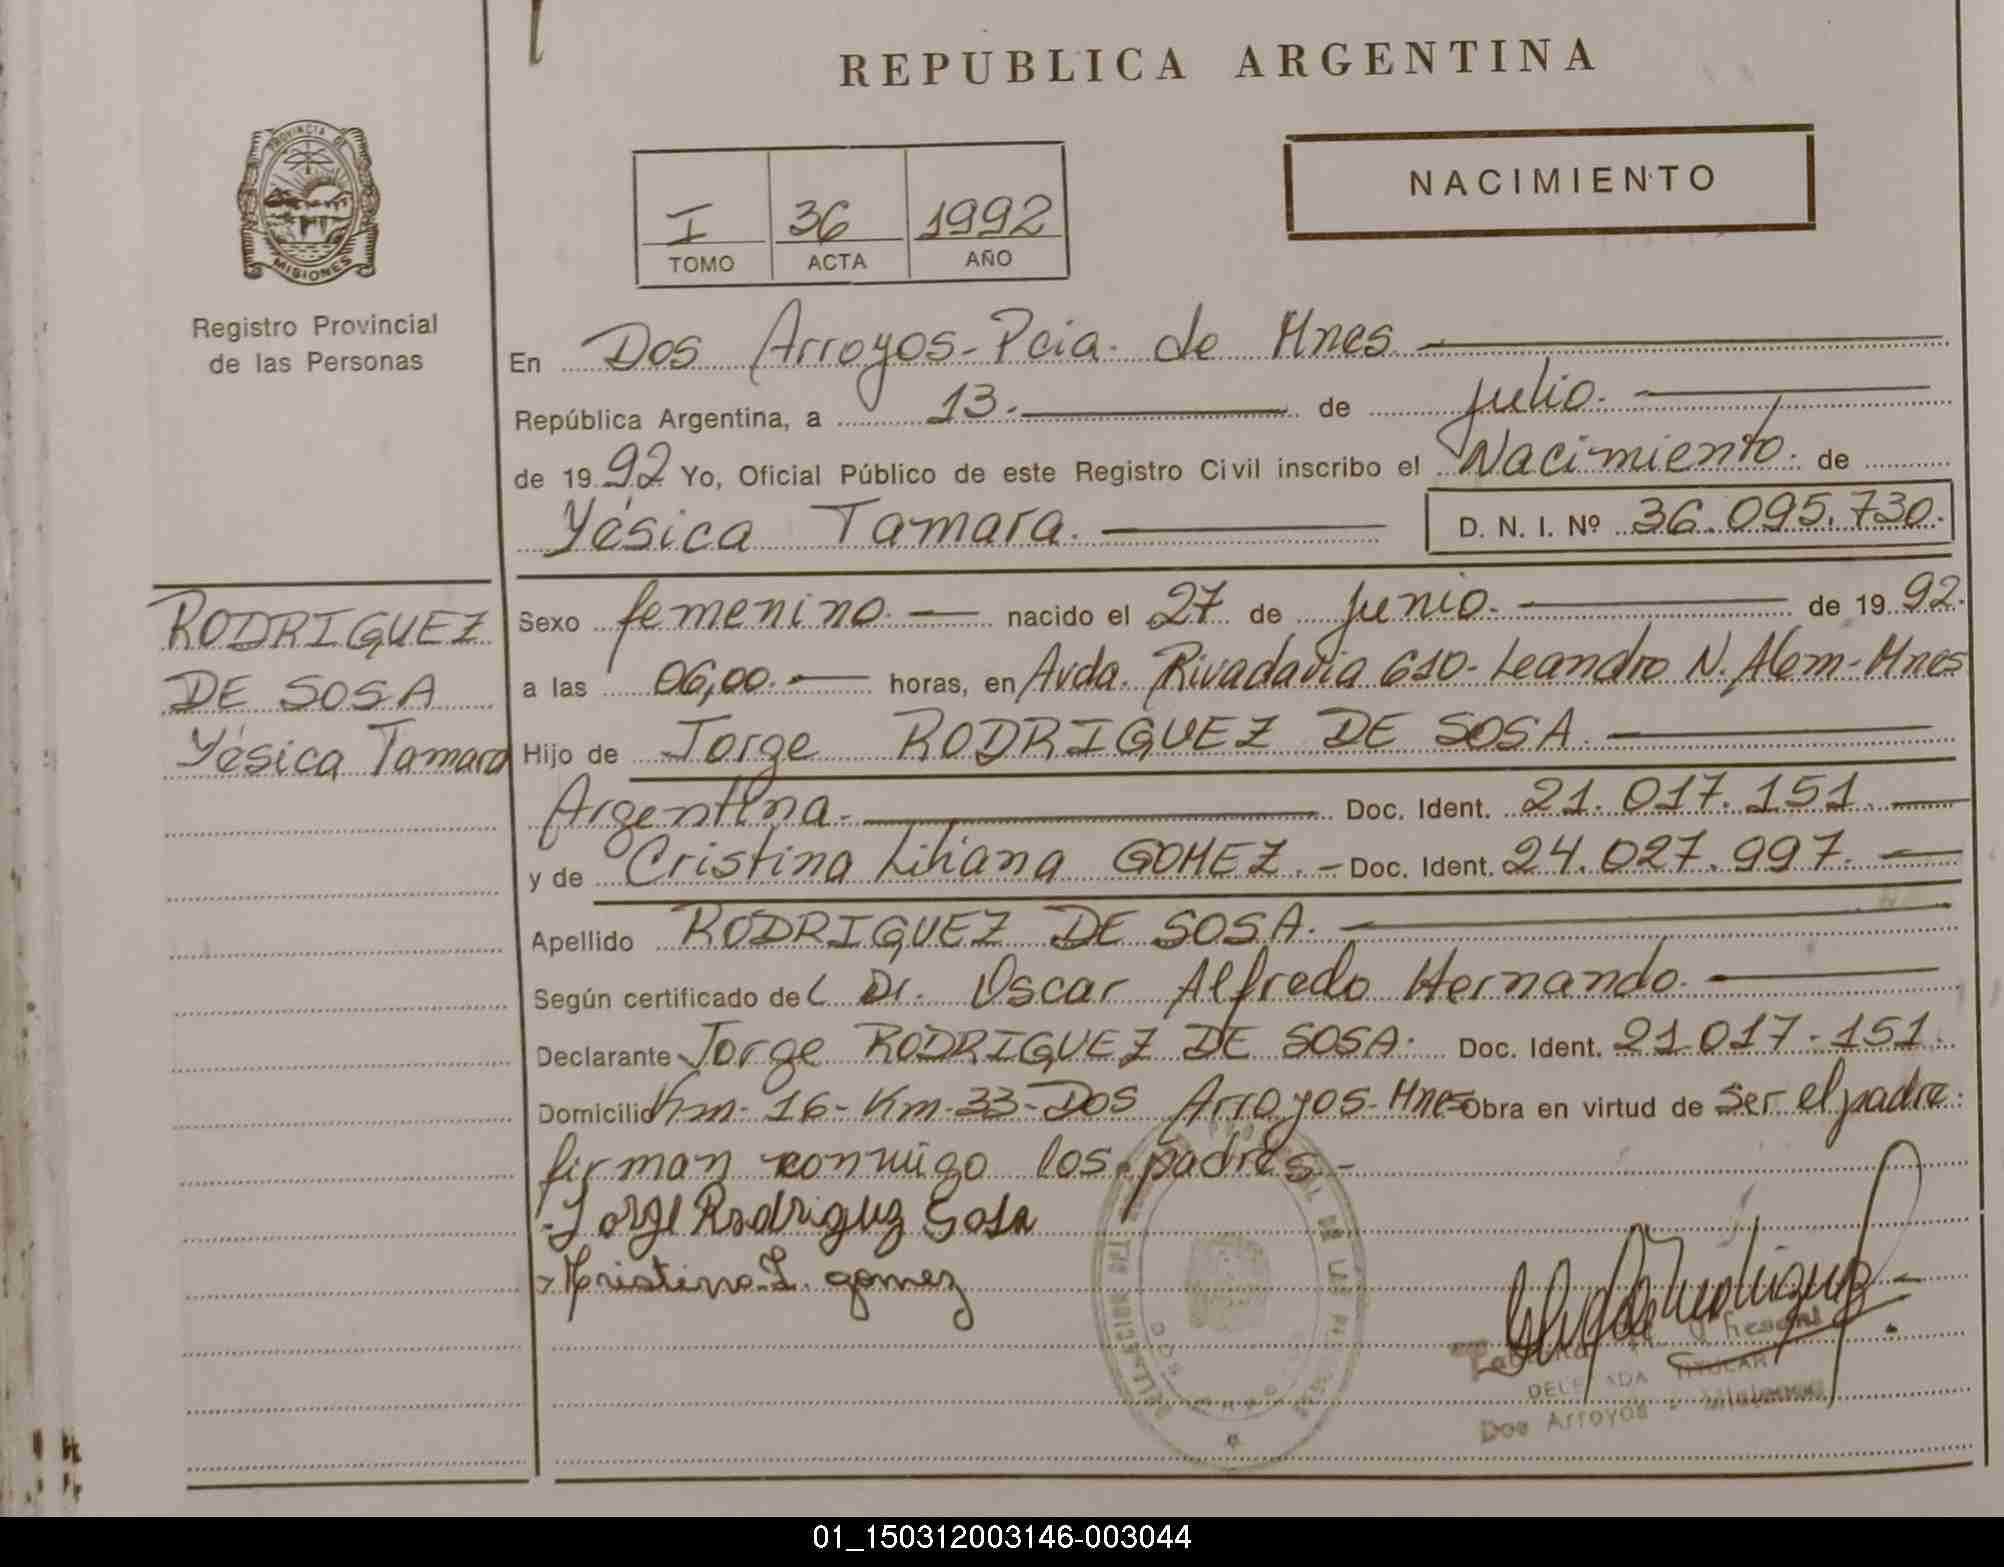 REPUBLICA ARGENTINA
PROVINCIA DE
MISIONES
Registro Provincial
de las Personas
I 36 1992
TOMO ACTA AÑO
NACIMIENTO
En Dos Arroyos-Pcia. de Mnes
República Argentina, a 13. de julio.
de 19 92 Yo, Oficial Público de este Registro Civil inscribo el Nacimiento. de
Yésica Tamara. D. N. I. Nº 36.095.730.
RODRIGUEZ
DE SOSA
Yésica Tamara
Sexo femenino. nacido el 27 de junio. de 19 92.
a las 06,00. horas, en Avda. Rivadavia 610-Leandro N. Alem-Mnes
Hijo de Jorge RODRIGUEZ DE SOSA
Argentina. Doc. Ident. 21.017.151
y de Cristina Liliana GOMEZ. - Doc. Ident. 24.027.997.
Apellido RODRIGUEZ DE SOSA.
Según certificado del Dr. Oscar Alfredo Hernando.
Declarante Jorge RODRIGUEZ DE SOSA. Doc. Ident. 21.017.151.
Domicilio Km-16-Km-33-Dos Arroyos-Mnes Obra en virtud de ser el padre.
firman conmigo los padres-
Jorge Rodriguez Sosa
Kristina L. gomez
TITULAR
Dos Arroyos - Misiones
01_150312003146-003044